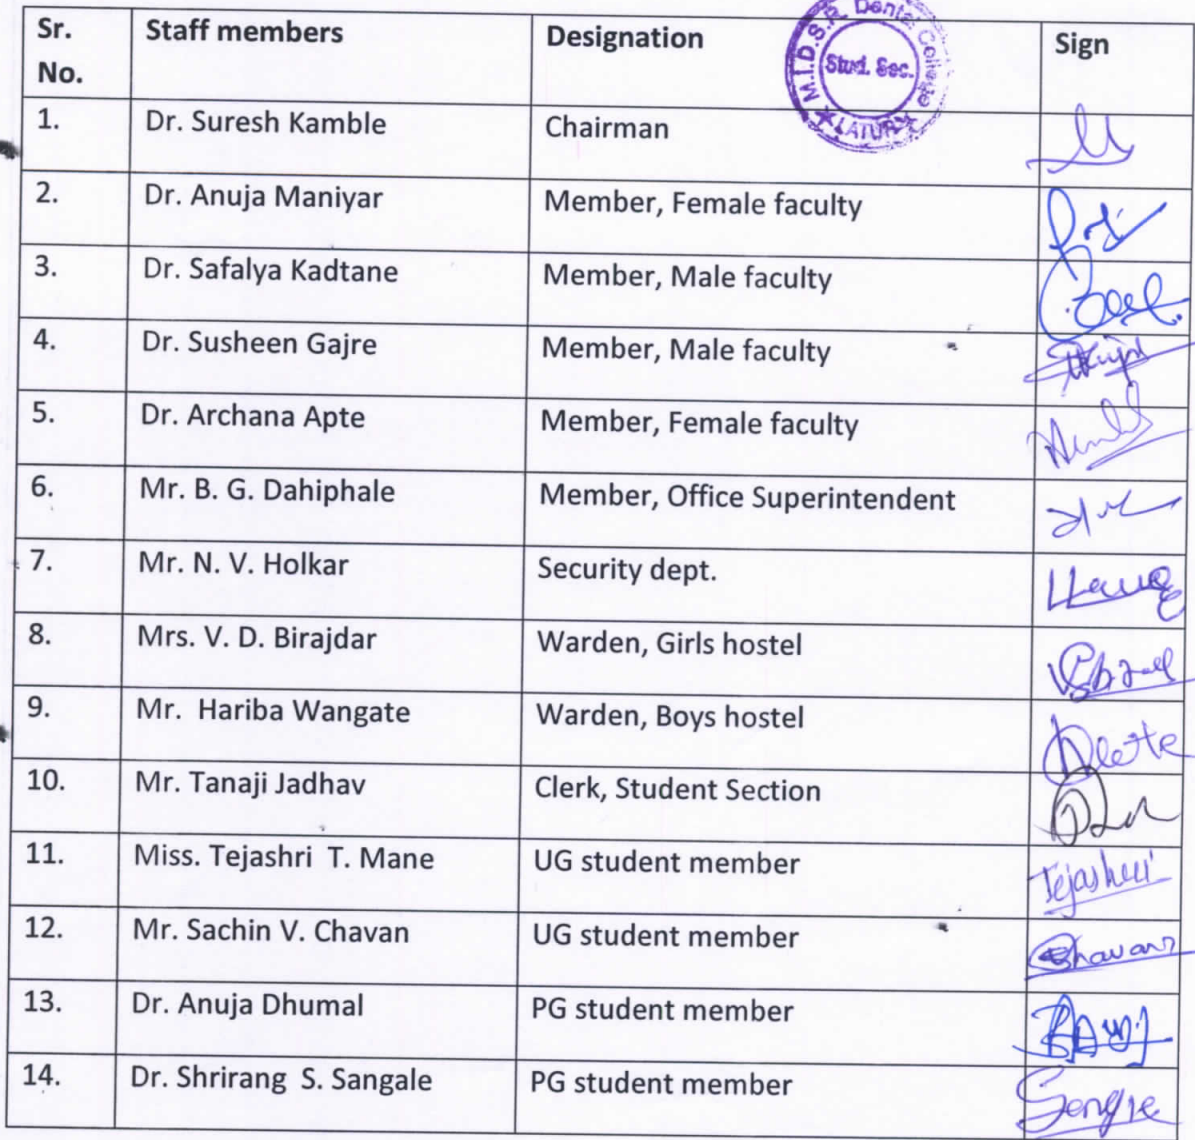 Sr. No. Staff members Designation Sign
M.I.D.S.R. Dental College
Stud. Sec.
LATUR
1. Dr. Suresh Kamble Chairman
2. Dr. Anuja Maniyar Member, Female faculty
3. Dr. Safalya Kadtane Member, Male faculty
4. Dr. Susheen Gajre Member, Male faculty
5. Dr. Archana Apte Member, Female faculty
6. Mr. B. G. Dahiphale Member, Office Superintendent
7. Mr. N. V. Holkar Security dept.
8. Mrs. V. D. Birajdar Warden, Girls hostel
9. Mr. Hariba Wangate Warden, Boys hostel
10. Mr. Tanaji Jadhav Clerk, Student Section
11. Miss. Tejashri T. Mane UG student member Tejashri
12. Mr. Sachin V. Chavan UG student member Chavan
13. Dr. Anuja Dhumal PG student member
14. Dr. Shrirang S. Sangale PG student member